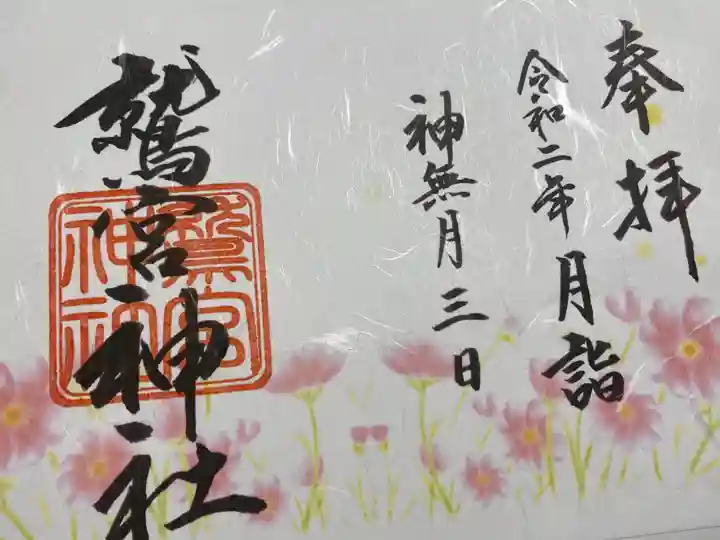 奉拝
令和二年月詣
神無月三日
鷲宮神社
鷲宮
神社